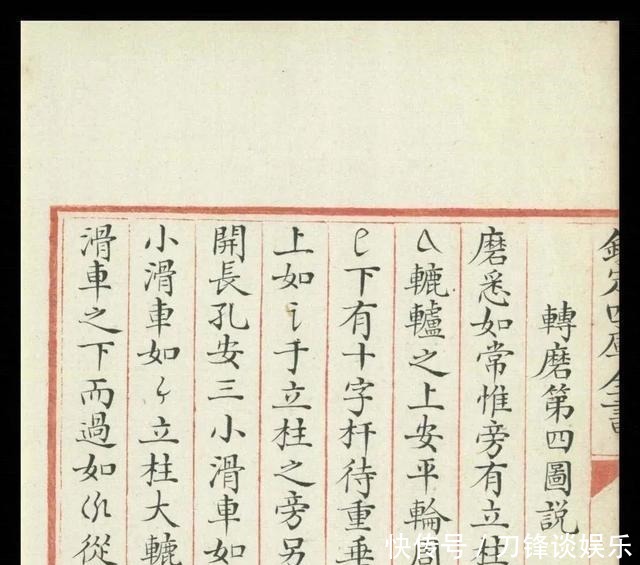 欽定四庫全書
轉磨第四圖説
磨悉如常惟旁有立柱
轆轤之上安平輪周
下有十字杆待重垂
上如i于立柱之旁另
開長孔安三小滑車如
小滑車如立柱大轆
滑車之下而過如從
快传号/刀锋谈娱乐